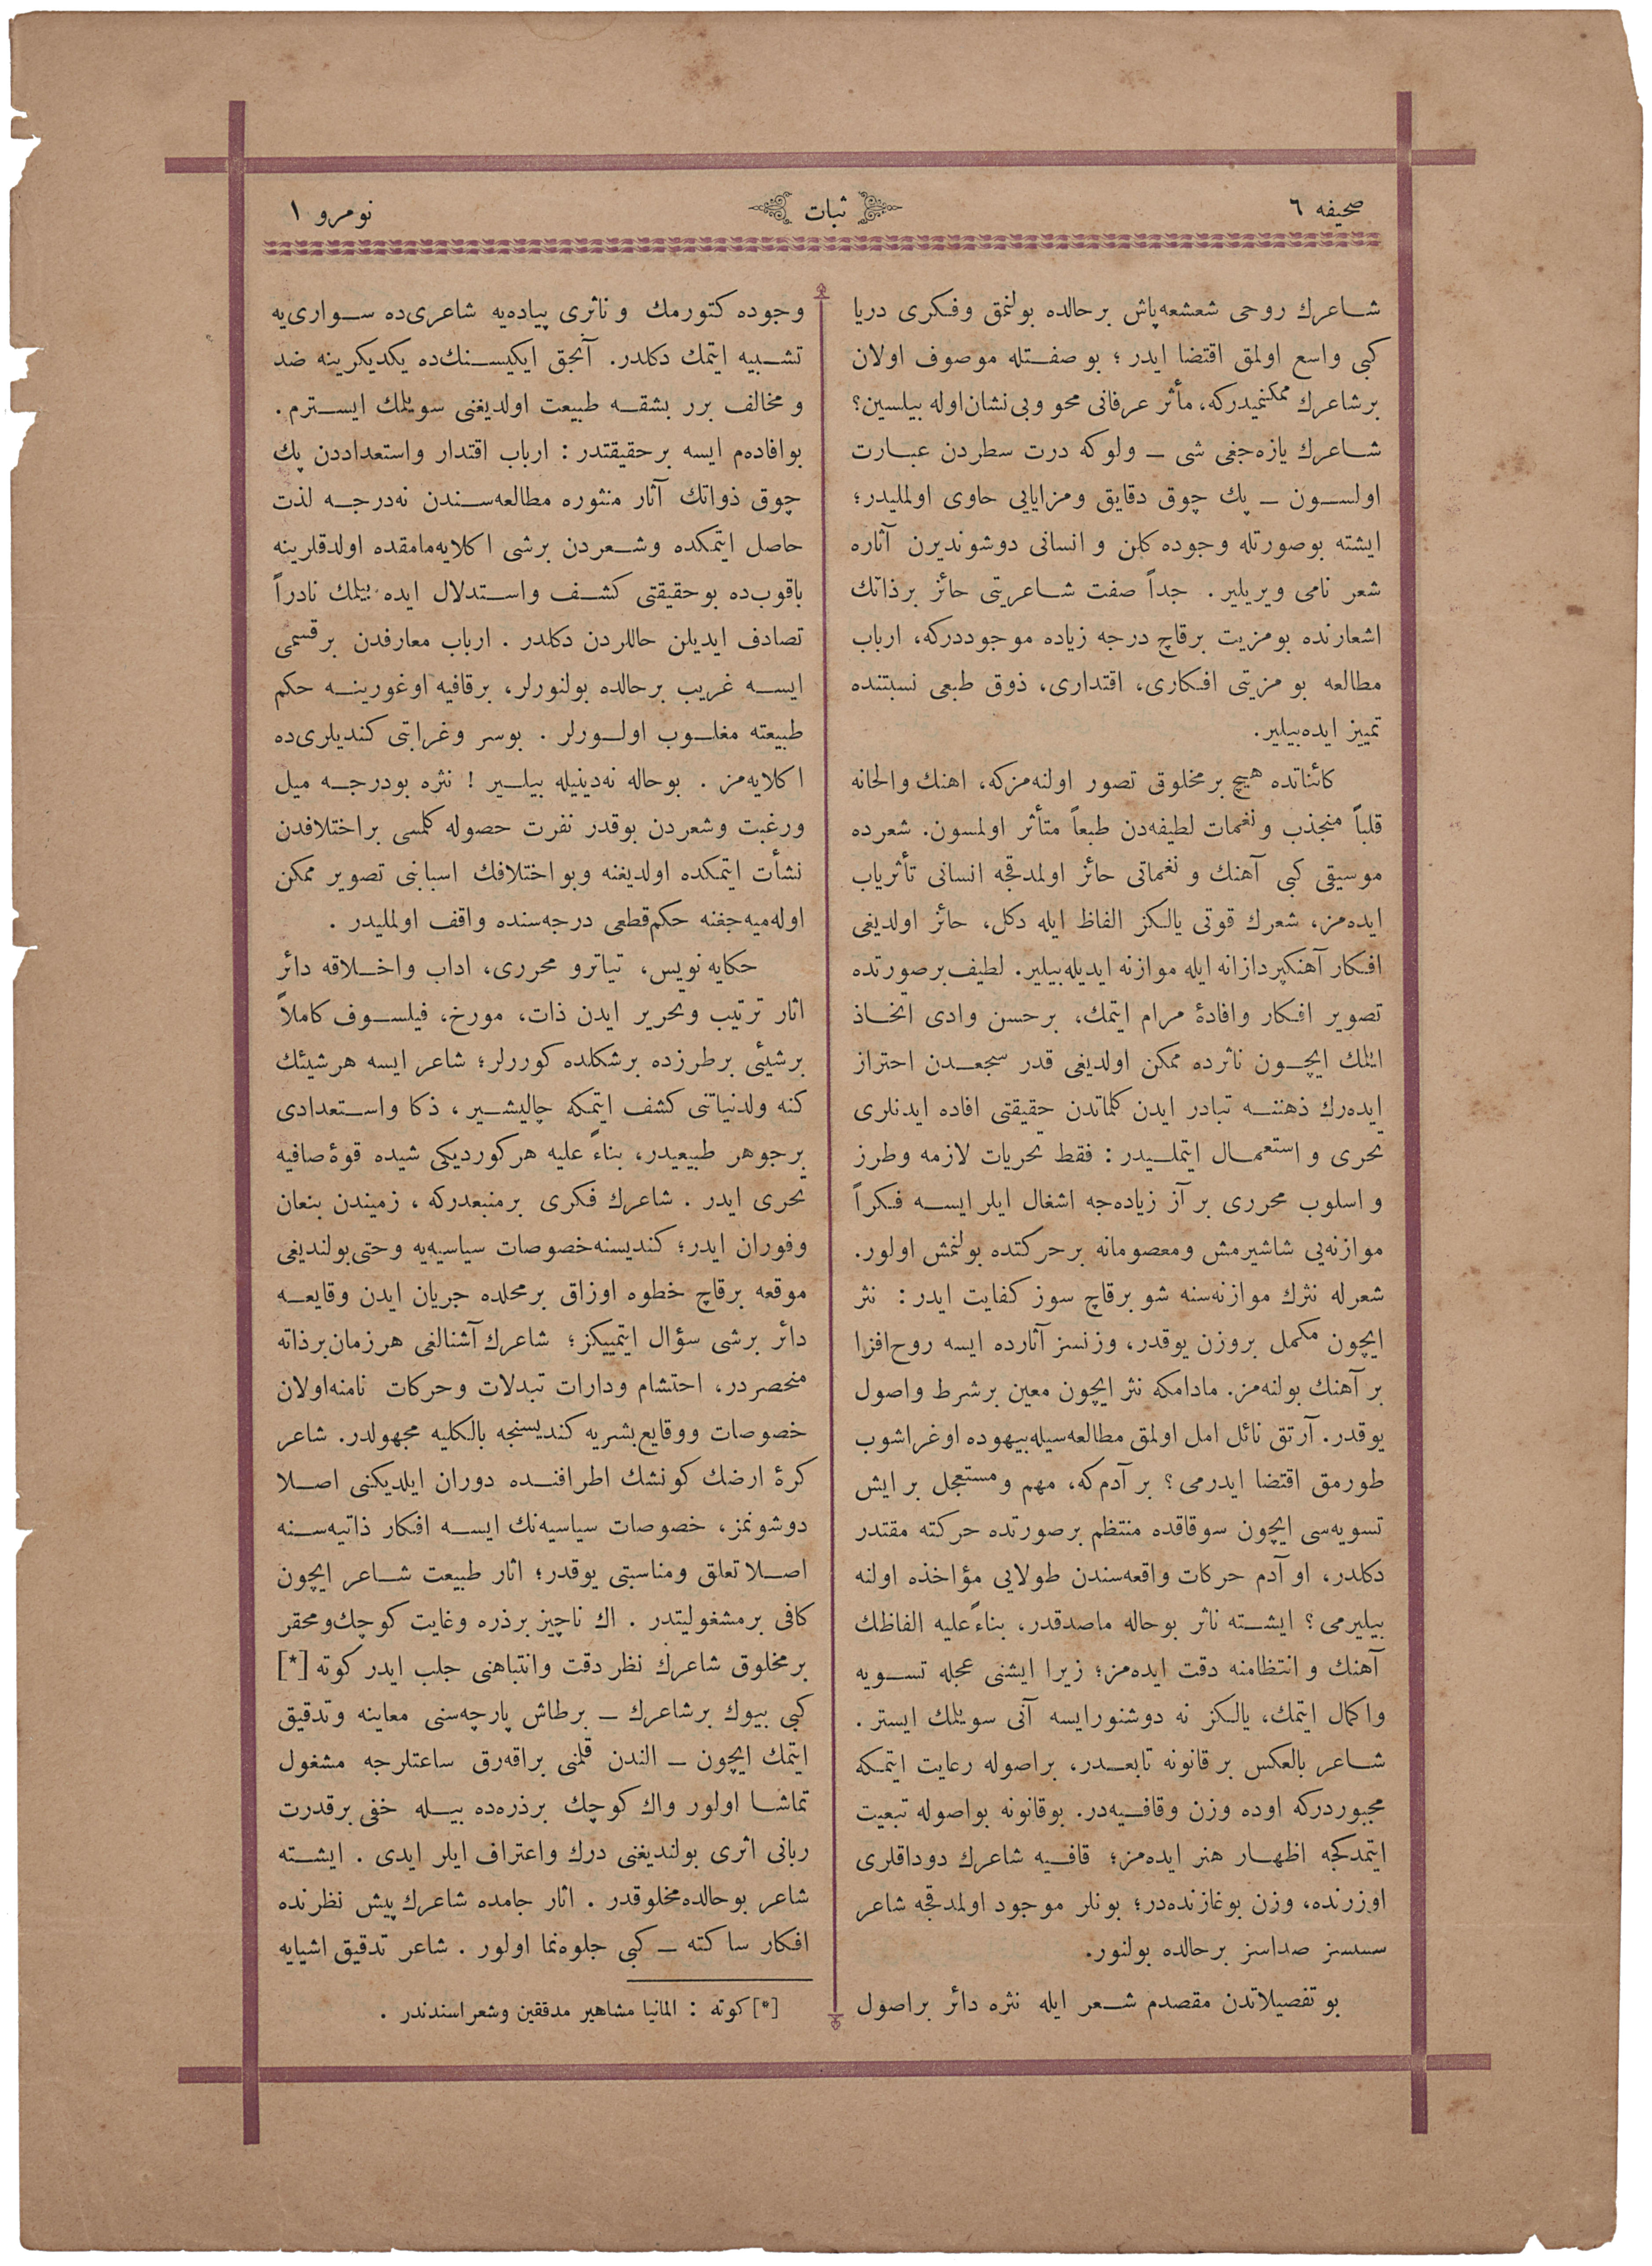 صحیفه ٦
ثبات
نومرو ١
شاعرك روحی شعشعه‌پاش برحالده بولنمق وفكری دریا
كبی واسع اولمق اقتضا ایدر ؛ بو صفتله موصوف اولان
برشاعرك ممكنمیدركه، مأثر عرفانی محو وبی‌نشان اوله بیلسین؟
شاعرك یازه‌جغی شی ـ ولوكه درت سطردن عبارت
اولسون ـ پك چوق دقایق ومزایایی حاوی اولملیدر؛
ایشته بوصورتله وجوده كلن و انسانی دوشوندیرن آثاره
شعر نامی ویریلیر . جداً صفت شاعریتی حائز برذاتك
اشعارنده بومزیت برقاچ درجه زیاده موجوددركه، ارباب
مطالعه بو مزیتی افكاری، اقتداری، ذوق طبعی نسبتنده
تمییز ایده‌بیلیر.
كائناتده هیچ برمخلوق تصور اولنه‌مزكه، اهنك والحانه
قلباً منجذب ونغمات لطیفه‌دن طبعاً متأثر اولمسون. شعرده
موسیقی كبی آهنك و نغماتی حائز اولمدقجه انسانی تأثریاب
ایده‌مز، شعرك قوتی یالكز الفاظ ایله دكل، حائز اولدیغی
افكار آهنكپردازانه ایله موازنه ایدیله‌بیلیر. لطیف برصورتده
تصویر افكار وافادهٔ مرام ایتمك، برحسن وادی اتخاذ
ایلمك ایچون ناثرده ممكن اولدیغی قدر سجعدن احتراز
ایده‌رك ذهننه تبادر ایدن كلماتدن حقیقتی افاده ایدنلری
تحری و استعمال ایتملیدر : فقط تحریات لازمه وطرز
و اسلوب محرری بر آز زیاده‌جه اشغال ایلر ایسه فكراً
موازنه‌یی شاشیرمش ومعصومانه برحركتده بولنمش اولور.
شعرله نثرك موازنه‌سنه شو برقاچ سوز كفایت ایدر : نثر
ایچون مكمل بروزن یوقدر، وزنسز آثارده ایسه روح‌افزا
بر آهنك بولنه‌مز. مادامكه نثر ایچون معین برشرط واصول
یوقدر. آرتق نائل امل اولمق مطالعه‌سیله بیهوده اوغراشوب
طورمق اقتضا ایدرمی؟ بر آدم كه، مهم ومستعجل بر ایش
تسویه‌سی ایچون سوقاقده منتظم برصورتده حركته مقتدر
دكلدر، او آدم حركات واقعه‌سندن طولایی مؤاخذه اولنه
بیلیرمی؟ ایشته ناثر بوحاله ماصدقدر، بناءً علیه الفاظك
آهنك و انتظامنه دقت ایده‌مز؛ زیرا ایشنی عجله تسویه
واكمال ایتمك، یالكز نه دوشنورایسه آنی سویلمك ایستر .
شاعر بالعكس بر قانونه تابعدر، براصوله رعایت ایتمكه
مجبوردركه اوده وزن وقافیه‌در. بوقانونه بواصوله تبعیت
ایتمدكجه اظهار هنر ایده‌مز؛ قافیه شاعرك دوداقلری
اوزرنده، وزن بوغازنده‌در؛ بونلر موجود اولمدقجه شاعر
سسسز صداسز برحالده بولنور.
بو تفصیلاتدن مقصدم شعر ایله نثره دائر براصول
وجوده كتورمك و ناثری پیاده‌یه شاعری‌ده سواری‌یه
تشبیه ایتمك دكلدر. آنجق ایكیسنك‌ده یكدیكرینه ضد
و مخالف برر بشقه طبیعت اولدیغنی سویلمك ایسترم.
بوافاده‌م ایسه برحقیقتدر : ارباب اقتدار واستعداددن پك
چوق ذواتك آثار منثوره مطالعه‌سندن نه‌درجه لذت
حاصل ایتمكده وشعردن برشی اكلایه‌مامقده اولدقلرینه
باقوب‌ده بوحقیقتی كشف واستدلال ایده بیلمك نادراً
تصادف ایدیلن حاللردن دكلدر . ارباب معارفدن برقسمی
ایسه غریب برحالده بولنورلر، برقافیه اوغورینه حكم
طبیعته مغلوب اولورلر . بوسر وغرابتی كندیلری‌ده
اكلایه‌مز . بوحاله نه‌دینیله بیلیر ! نثره بودرجه میل
ورغبت وشعردن بوقدر نفرت حصوله كلمسی براختلافدن
نشأت ایتمكده اولدیغنه وبو اختلافك اسبابنی تصویر ممكن
اوله‌میه‌جغنه حكم‌قطعی درجه‌سنده واقف اولملیدر .
حكایه‌نویس، تیاترو محرری، اداب واخلاقه دائر
اثار ترتیب وتحریر ایدن ذات، مورخ، فیلسوف كاملاً
برشیئی برطرزده برشكلده كوررلر؛ شاعر ایسه هرشیئك
كنه ولدنیاتنی كشف ایتمكه چالیشیر، ذكا واستعدادی
برجوهر طبیعیدر، بناءً علیه هركوردیكی شیده قوهٔ صافیه
تحری ایدر . شاعرك فكری برمنبعدركه، زمیندن بنعان
وفوران ایدر؛ كندیسنه خصوصات سیاسیه‌یه وحتی بولندیغی
موقعه برقاچ خطوه اوزاق برمحلده جریان ایدن وقایعه
دائر برشی سؤال ایتمییكز؛ شاعرك آشنالغی هرزمان برذاته
منحصردر، احتشام ودارات تبدلات وحركات نامنه‌اولان
خصوصات ووقایع‌بشریه كندیسنجه بالكلیه مجهولدر. شاعر
كرهٔ ارضك كونشك اطرافنده دوران ایلدیكنی اصلا
دوشونمز، خصوصات سیاسیه‌نك ایسه افكار ذاتیه‌سنه
اصلا تعلق ومناسبتی یوقدر؛ اثار طبیعت شاعر ایچون
كافی برمشغولیتدر . اك ناچیز برذره وغایت كوچك‌ومحقر
برمخلوق شاعرك نظر دقت وانتباهنی جلب ایدر كوته [*]
كبی بیوك برشاعرك ـ برطاش پارچه‌سنی معاینه وتدقیق
ایتمك ایچون ـ الندن قلمنی براقه‌رق ساعتلرجه مشغول
تماشا اولور واك كوچك برذره‌ده بیله خفی برقدرت
ربانی اثری بولندیغنی درك واعتراف ایلر ایدی . ایشته
شاعر بوحالده مخلوقدر . اثار جامده شاعرك پیش نظرنده
افكار ساكته ـ كبی جلوه‌نما اولور . شاعر تدقیق اشیایه
[*] كوته : المانیا مشاهیر مدققین وشعراسندندر .